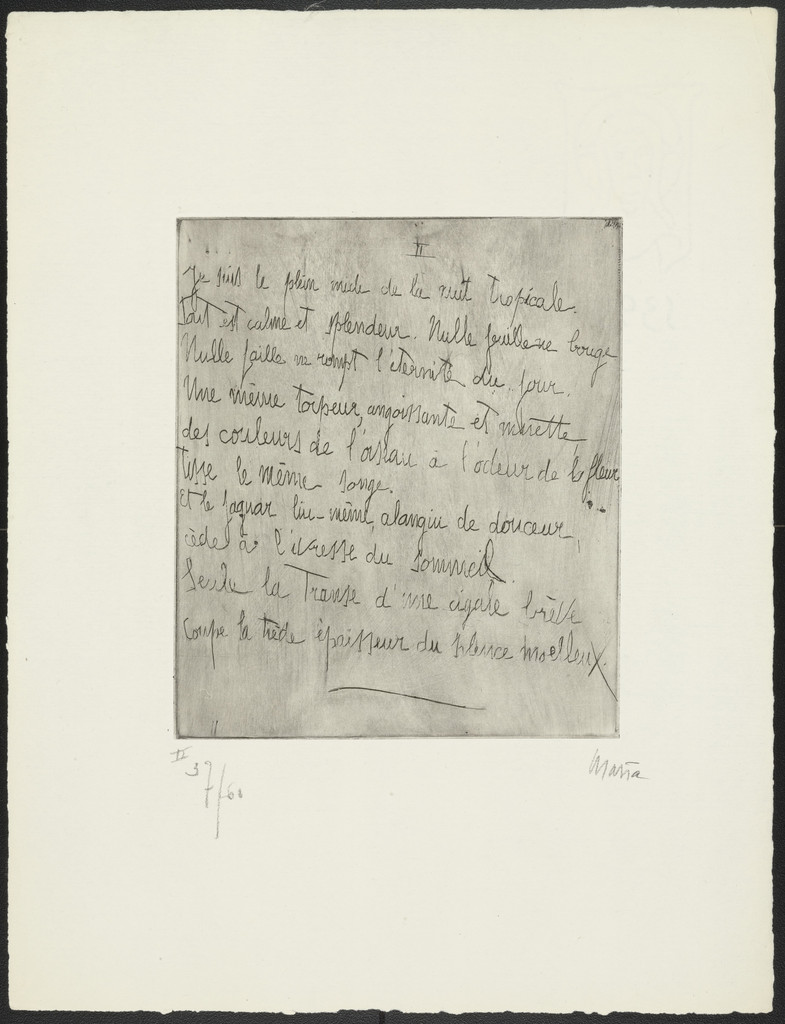 II
Je suis le plein midi de la nuit tropicale.
Tout est calme et splendeur. Nulle feuille ne bouge
Nulle faille ne rompt l'éternité du jour.
Une même torpeur, angoissante et muette,
des couleurs de l'oiseau à l'odeur de la fleur
tisse le même songe.
Et le jaguar lui-même, alangui de douceur,
cède à l'ivresse du sommeil.
Seule la Transe d'une cigale brève
coupe la tiède épaisseur du silence moelleux.
II 37/60
Maria